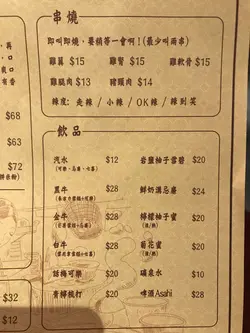 串燒
即叫即燒，要稍等一會啊！(最少叫兩串)
雞翼 $15 雞腎 $15 雞軟骨 $15
雞腿肉 $13 豬頸肉 $14
辣度: 走辣 / 小辣 / OK辣 / 辣到笑
$68
$63
$72
飲品
汽水 $12 岩鹽柚子雪碧 $20
(可樂、忌廉、七喜)
黑牛 $28 鮮奶溝忌廉 $24
金牛 $28 檸檬柚子蜜 $20
白牛 $28 菊花蜜 $20
話梅可樂 $20 礦泉水 $10
青檸梳打 $20 啤酒Asahi $28
$32
$12